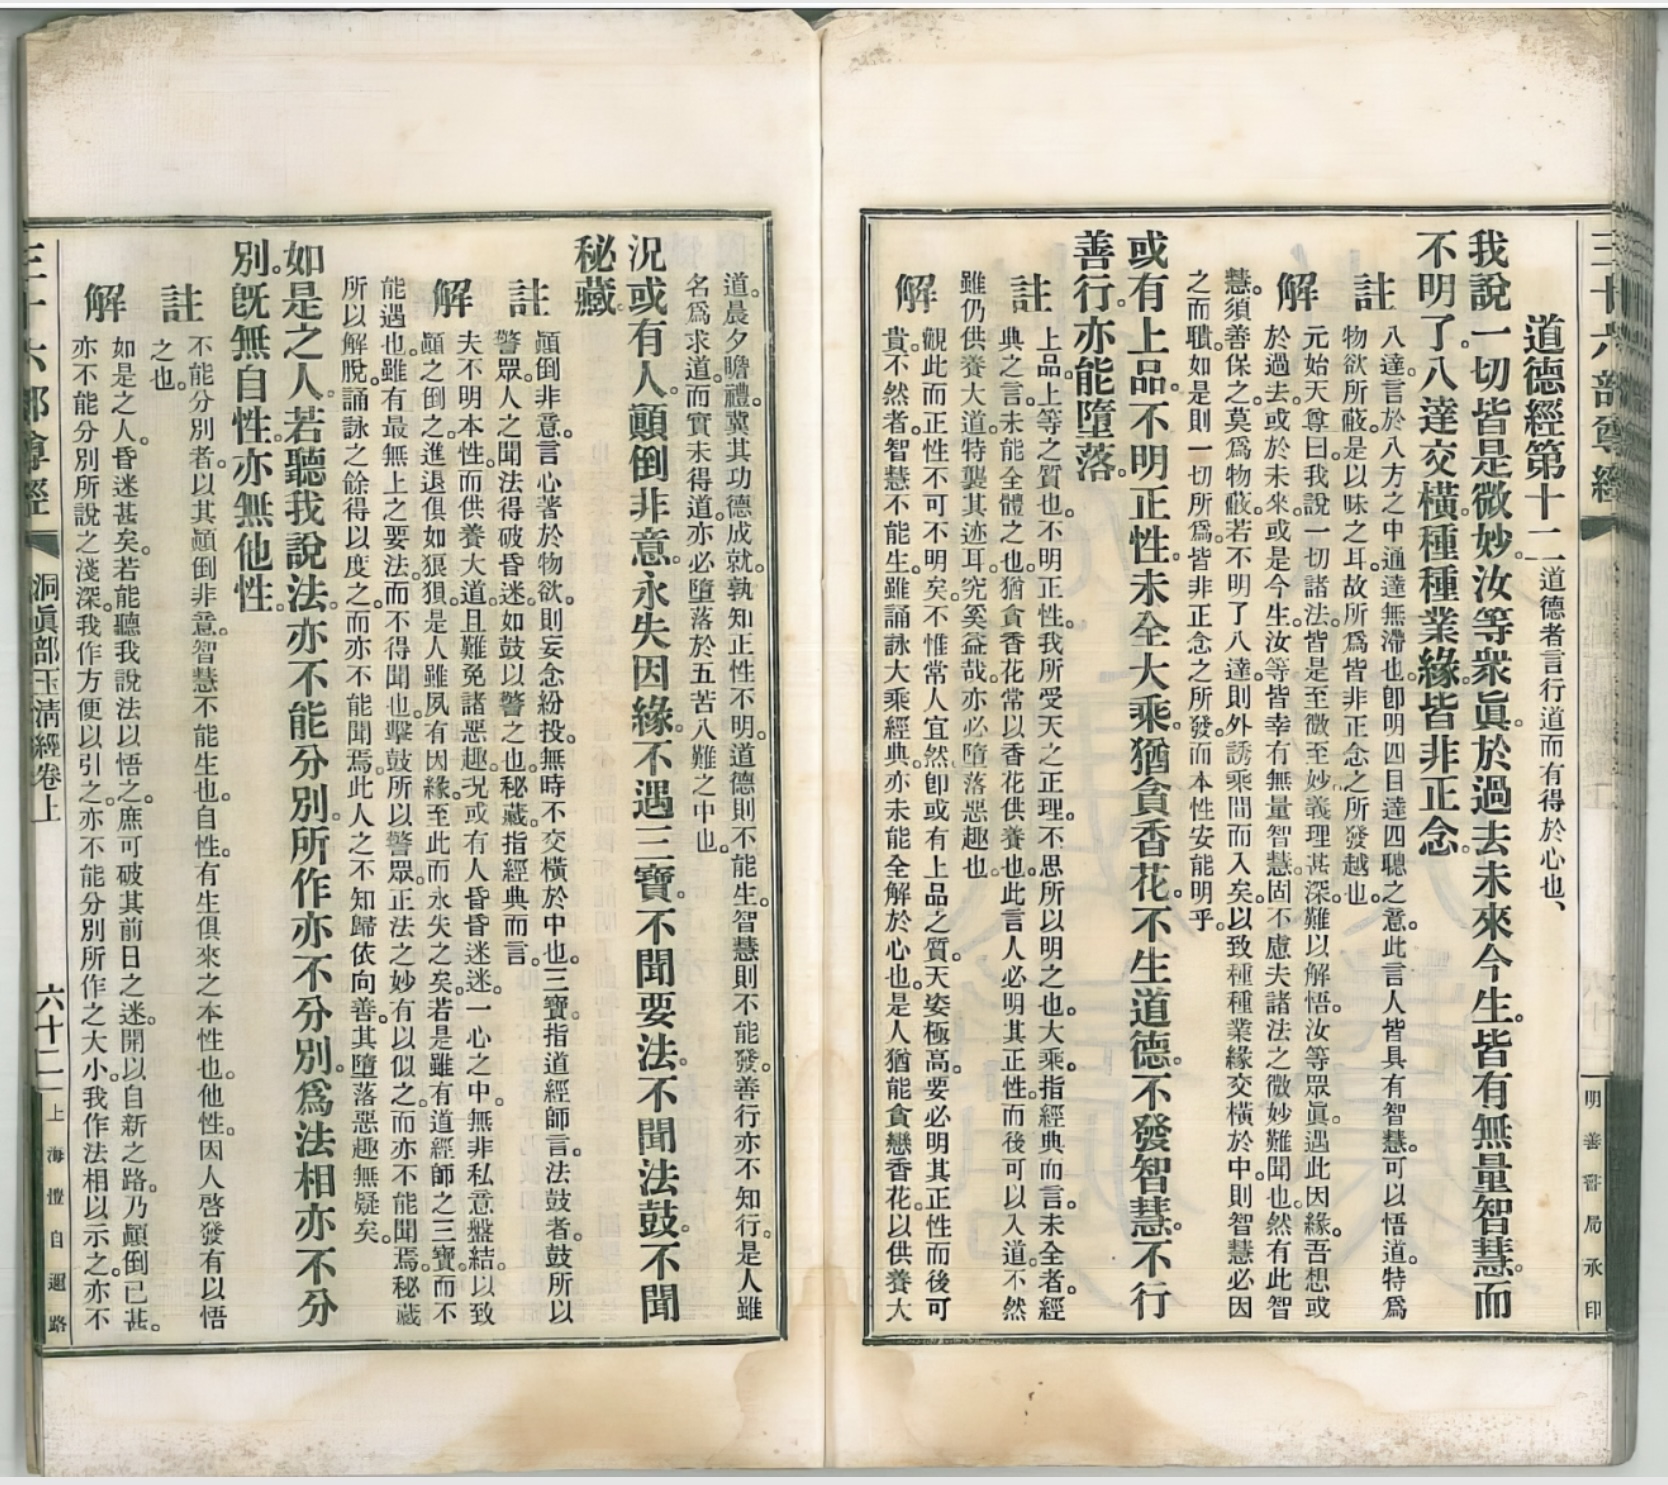 三十六部尊經
明善書局承印
道德經第十二道德者言行道而有得於心也、
我說一切皆是微妙。汝等衆眞。於過去未來今生。皆有無量智慧。而
不明了。八達交橫。種種業緣。皆非正念。
註
八達。言於八方之中通達無滯也。卽明四目達四聰之意。此言人皆具有智慧。可以悟道。特爲
物欲所蔽。是以昧之耳。故所爲皆非正念之所發越也。
解
元始天尊曰。我說一切諸法。皆是至微至妙。義理甚深。難以解悟。汝等眾眞。遇此因緣。吾想或
於過去。或於未來。或是今生。汝等皆幸有無量智慧。固不慮夫諸法之微妙難聞也。然有此智
慧。須善保之。莫爲物蔽。若不明了八達。則外誘乘間而入矣。以致種種業緣交橫於中。則智慧必因
之而聵。如是則一切所爲。皆非正念之所發。而本性安能明乎。
或有上品。不明正性。未全大乘。猶貪香花。不生道德。不發智慧。不行
善行。亦能墮落。
註
上品。上等之質也。不明正性。我所受天之正理。不思所以明之也。大乘。指經典而言。未全者。經
典之言。未能全體之也。猶貪香花。常以香花供養也。此言人必明其正性。而後可以入道。不然
雖仍供養大道。特襲其迹耳。究奚益哉。亦必墮落惡趣也。
解
觀此而正性不可不明矣。不惟常人宜然。卽或有上品之質。天姿極高。要必明其正性而後可
貴。不然者。智慧不能生。雖誦詠大乘經典。亦未能全解於心也。是人猶能貪戀香花。以供養大
道。晨夕瞻禮。冀其功德成就。孰知正性不明。道德則不能生。智慧則不能發。善行亦不知行。是人雖
名爲求道。而實未得道。亦必墮落於五苦八難之中也。
況或有人。顚倒非意。永失因緣。不遇三寶。不聞要法。不聞法鼓。不聞
秘藏。
註
顚倒非意。言心著於物欲。則妄念紛投。無時不交橫於中也。三寶。指道經師言。法鼓者。鼓所以
警眾。人之聞法得破昏迷。如鼓以警之也。秘藏。指經典而言。
解
夫不明本性。而供養大道。且難免諸惡趣。況或有人昏昏迷迷。一心之中。無非私意盤結。以致
顚之倒之。進退俱如狼狽。是人雖夙有因緣。至此而永失之矣。若是雖有道經師之三寶。而不
能遇也。雖有最無上之要法。而不得聞也。擊鼓所以警眾。正法之妙有以似之。而亦不能聞焉。秘藏
所以解脫。誦詠之餘得以度之。而亦不能聞焉。此人之不知歸依向善。其墮落惡趣無疑矣。
如是之人。若聽我說法。亦不能分別。所作亦不分別。爲法相亦不分
別。旣無自性。亦無他性。
註
不能分別者。以其顚倒非意。智慧不能生也。自性。有生俱來之本性也。他性。因人啓發有以悟
之也。
解
如是之人。昏迷甚矣。若能聽我說法以悟之。庶可破其前日之迷。開以自新之路。乃顚倒已甚。
亦不能分別所說之淺深。我作方便以引之。亦不能分別所作之大小。我作法相以示之。亦不
三十六部尊經
洞眞部玉清經卷上
六十二
上海澧自邇路